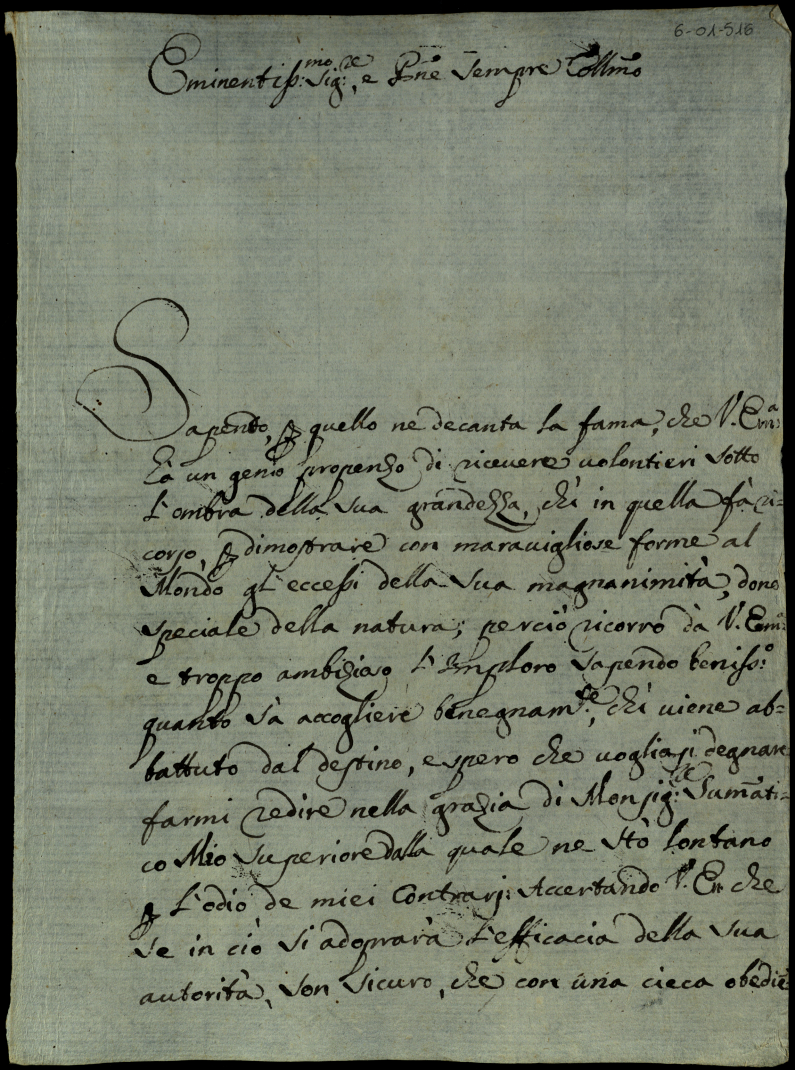 6-01-516
Eminentiss:mo Sig:re, e Pne Sempre Collmo
Sapendo, p quello ne decanta la fama, che V. Em:a
hà un genio propenzo di ricevere volontieri sotto
l'ombra della sua grandezza, chi in quella fà ri=
corso, p dimostrare con maravigliose forme al
Mondo gl'eccessi della sua magnanimità, dono
speciale della natura; perciò ricorro da V. Em:
e troppo ambizioso l'Imploro sapendo beniss:o
quanto sà accogliere benegnam:te, chi viene ab=
battuto dal destino, e spero che vogliasi degnare
farmi redire nella grazia di Monsig:re Sum̃ati=
co Mio Superiore dalla quale ne stò lontano
p l'odio de miei Contrarj: Accertando V. Em che
se in ciò si adoprarà l'efficacia della sua
autorità, son sicuro, che con una cieca obedie=